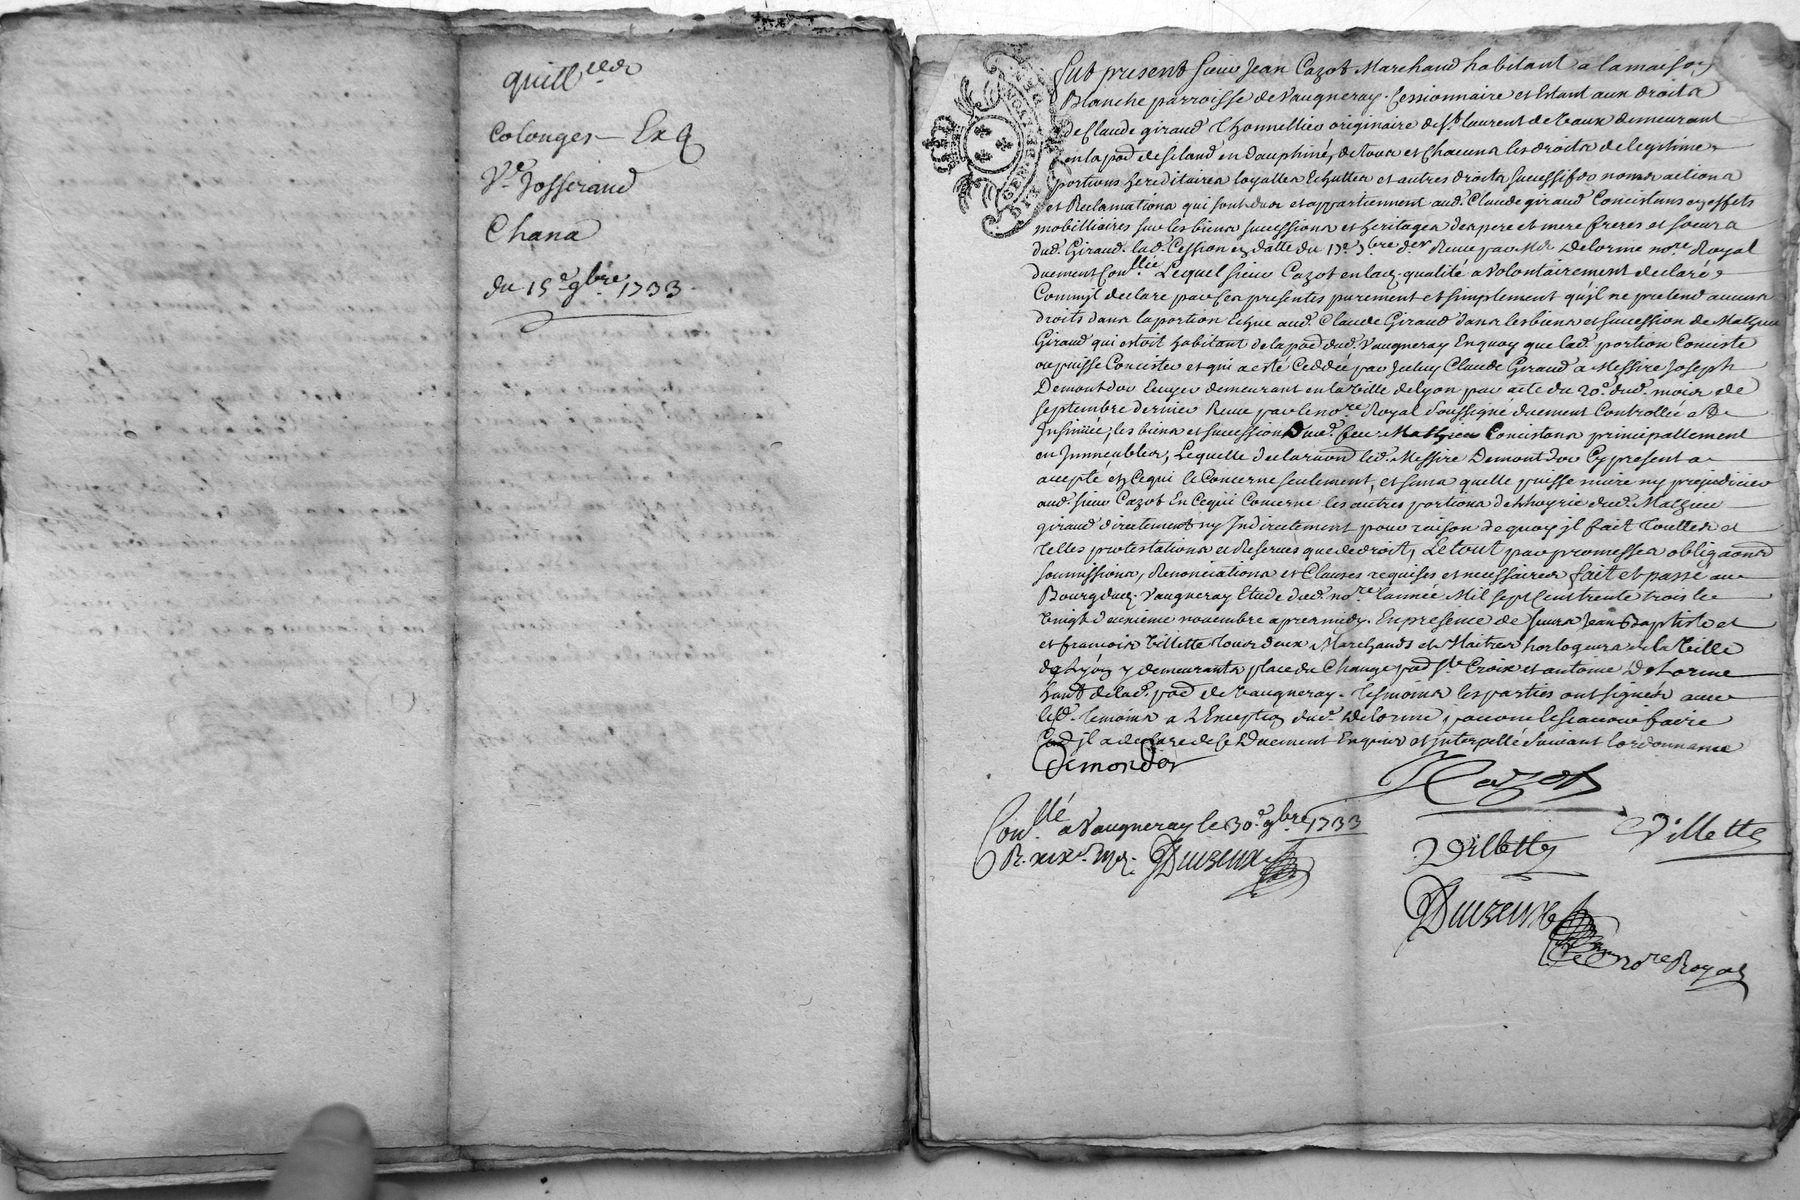 quitt.ce de
Colonges Ex q
V.e Josserand
Chana
du 15.e 9bre 1733
GEN. DE LYON
Fut present Sieur Jean Cazot Marchand habitant a la maison
Blanche parroisse de Vaugneray. Cessionnaire et Estant aux droits
de Claude giraud Thonnellier originaire de St. laurent de Vaux demeurant
en la pod. de en Dauphiné, de tous et Chacuns les droits de legitime
portions hereditaires loyalles Echuttes et autres droits successifs noms actions
et Reclamations qui sont dus et appartiennent aud. Claude giraud Concistans en effets
mobilliaires sur les biens successions et heritages des pere et mere freres et soeurs
dud. Giraud. lad. Cession en datte du 17.e 7bre der Reçue par Me Delorme nore Royal
duement Conllée Lequel sieur Cazot en lad. qualité a volontairement declaré
Comm'jl declare par ces presentes purement et simplement qu'jl ne pretend aucuns
droits dans la portion Echue aud. Claude Giraud dans les biens et succession de Mathieu
Giraud qui estoit habitant de la pod. dud. Vaugneray En quoy que lad. portion Conciste
ou puisse Concister et qui a esté Ceddée par jceluy Claude Giraud a Messire Joseph
Demondor Ecuyer demeurant en la Ville de Lyon par acte du 20.e dud. mois de
septembre dernier Receu par le nore Royal soussigné duement Controllée et
Insinüée, les biens et succession dud. feu Mathieu Concistans principallement
en Immeubles, Lequelle declaraon led. Messire Demondor Cy present a
accepté en Ce qui le Concerne seulement, et sans quelle puisse nuire ny prejudicier
aud. sieur Cazot En Ce qui Concerne les autres portions d'hoyrie dud. Mathieu
giraud directement ny Indirectement pour raison de quoy jl fait touttes et
telles protestations et Reserves que de droit, Le tout par promesses obligaons
soumissions, Renonciations et Clauses requises et necessaires fait et passé au
Bourg dud. Vaugneray Etude dud. nore l'année Mil sept Cens trente trois le
Vingt deuxieme novembre apres midy. En presence de sieurs Jean Baptiste et
et francois Villette tous deux Marchands et Maitres horlogeurs de la Ville
de Lyon y demeurants place du Change pod. Ste Croix et antoine Delorme
habt de lad. pod. de Vaugneray. temoins les parties ont signés avec
lesd. temoins a L'Exception dud. Delorme, pour ne le scavoir faire
Comm'jl a declaré de Ce Duement Enquis et jnterpellé suivant l'ordonnance
Demondor
Cazot
Conllé a Vaugneray le 30.e 9bre 1733
Villette
Villette
nore Royal